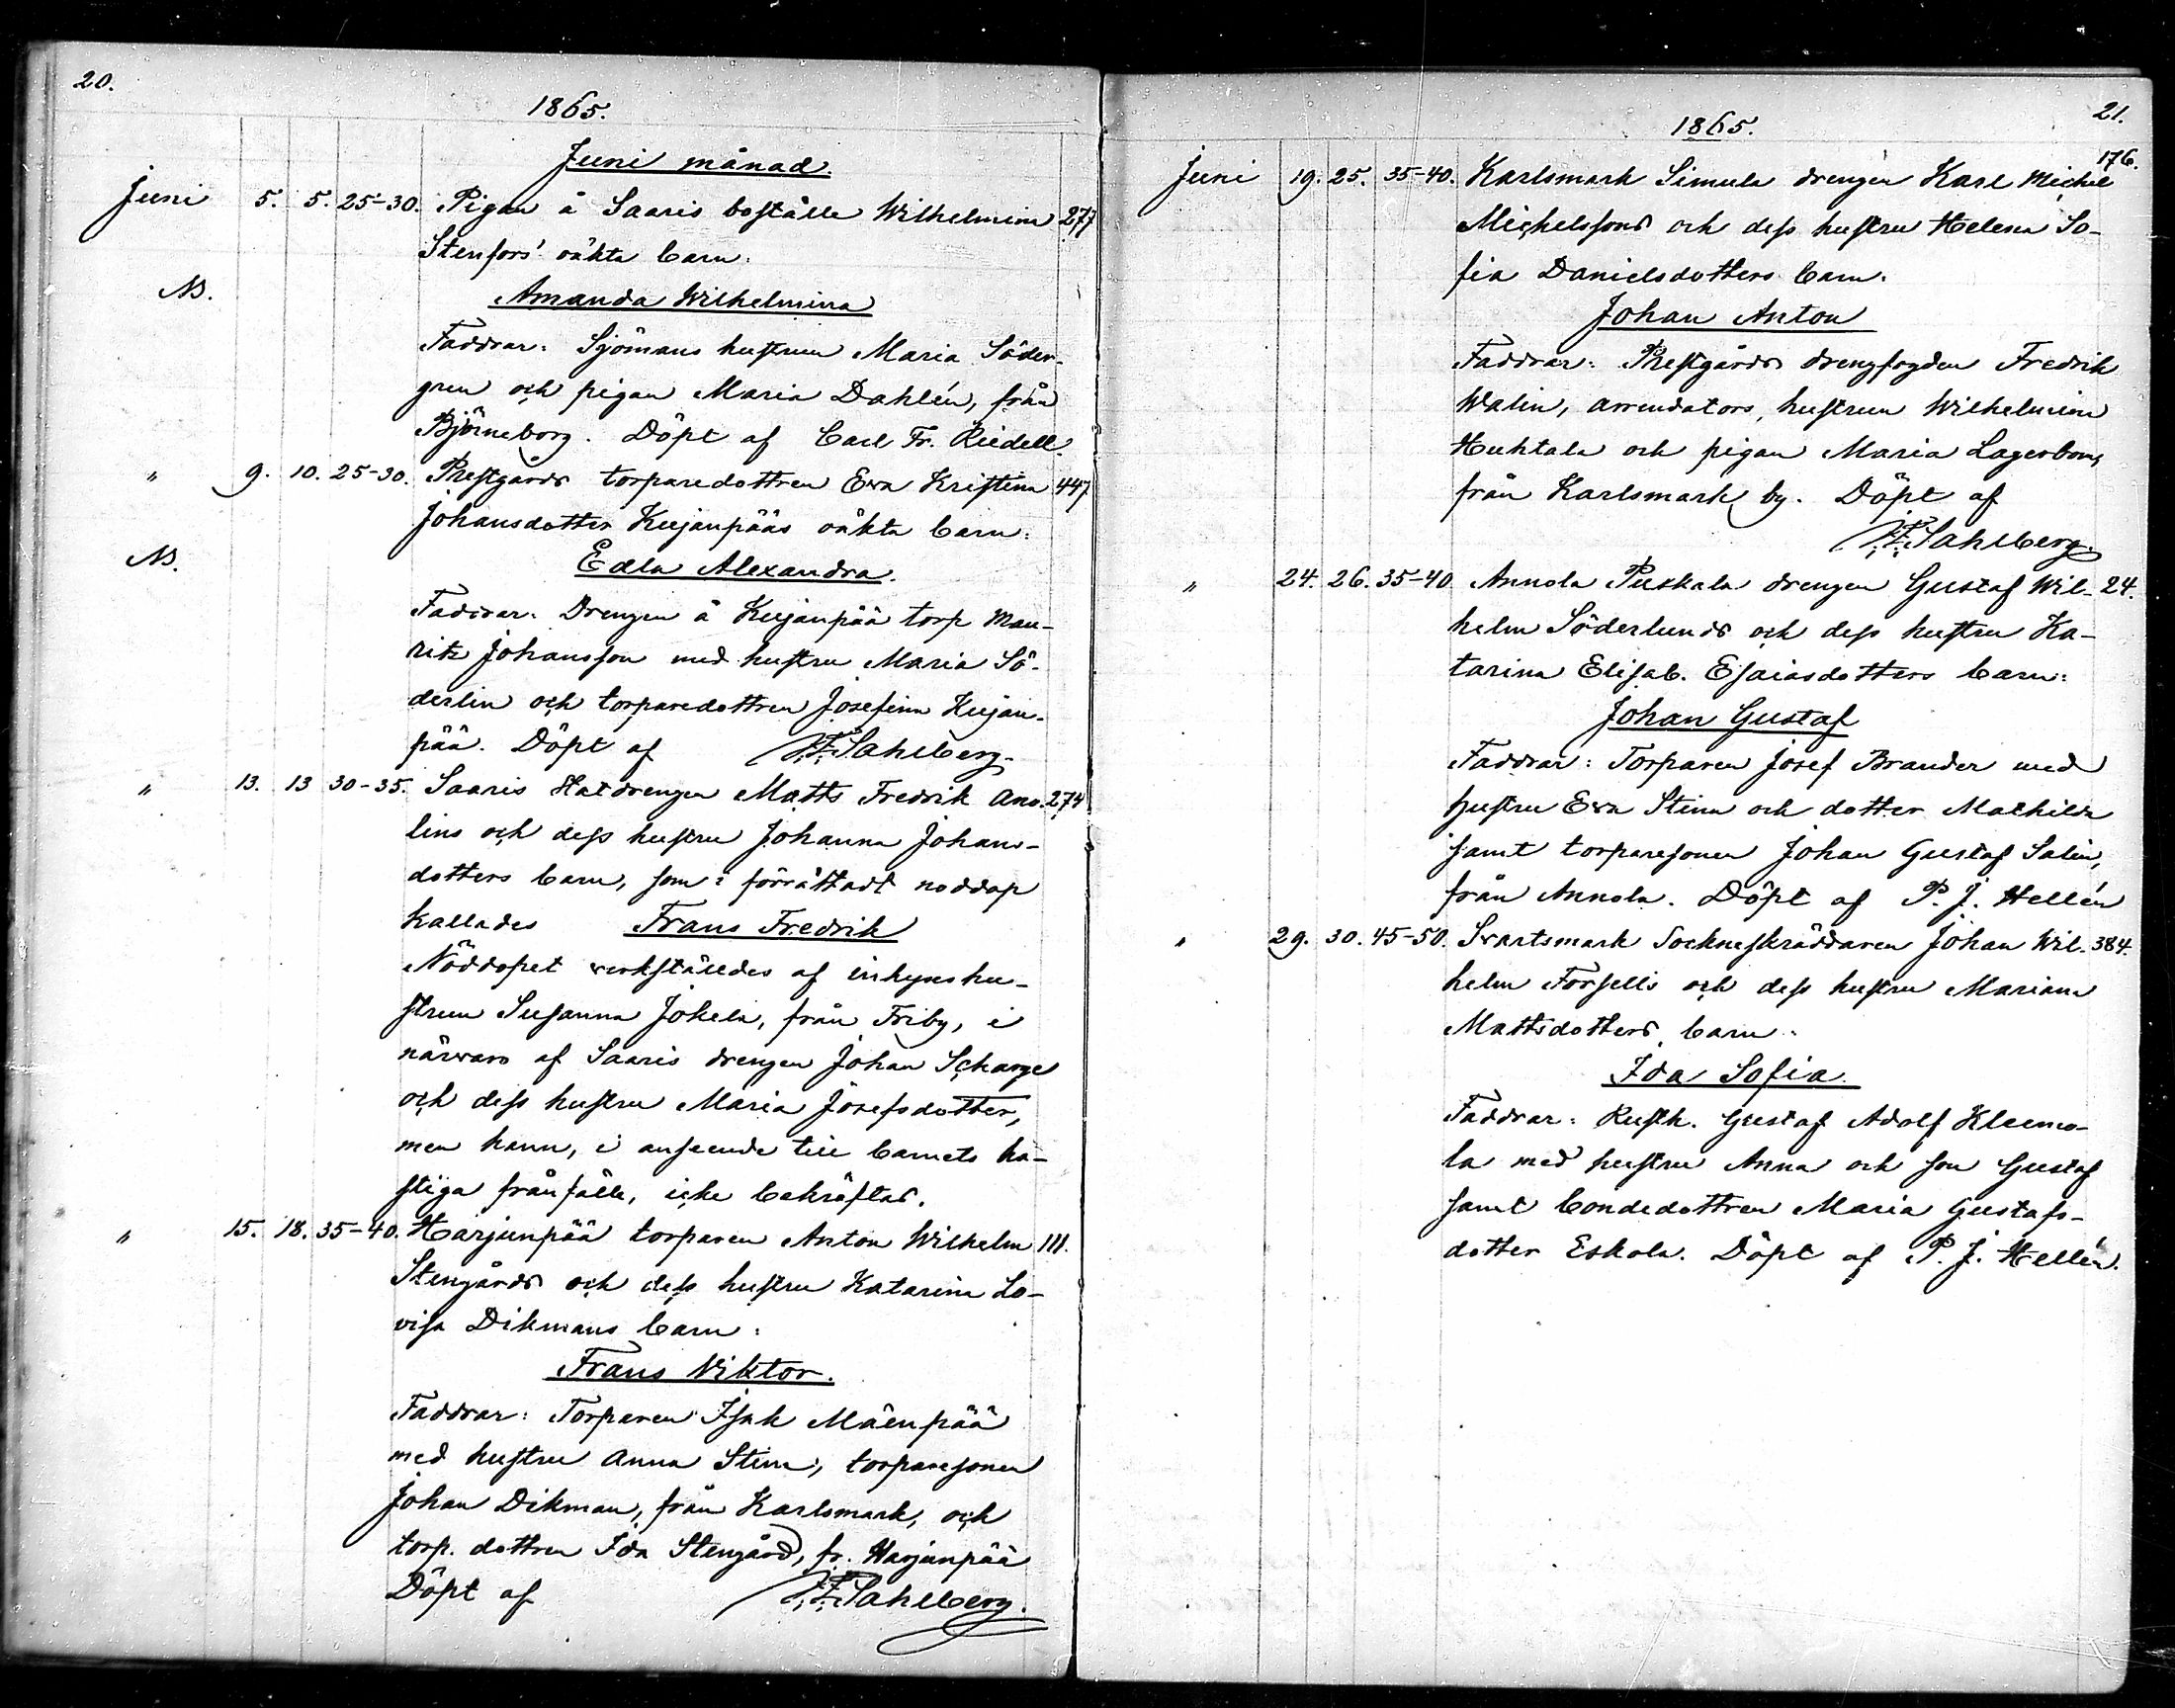 20.
1865.
Juni månad.
Juni 5. 5. 25-30. Pigan å Saaris boställe Wilhelmina 277
Stenfors' oäkta barn:
NB. Amanda Wilhelmina
Faddrar: Sjömans hustrun Maria Söder-
gren och pigan Maria Dahlén, från
Björneborg. Döpt af Carl Fr. Riedell.
" 9. 10. 25-30. Prestgårds torparedottren Eva Kristina 447
Johansdotter Kujanpääs oäkta barn:
NB. Edla Alexandra.
Faddrar: Drengen å Kujanpää torp Mau-
ritz Johansson med hustru Maria Sö-
derlin och torparedottren Josefina Kujan-
pää. Döpt af F. Sahlberg.
" 13. 13 30-35. Saaris Statdrengen Matts Fredrik Ano- 274
lins och dess hustru Johanna Johans-
dotters barn, som i förrättadt nöddop
kallades Frans Fredrik
Nöddopet verkställdes af inhyseshu-
strun Susanna Jokela, från Friby, i
närvaro af Saaris drengen Johan Scharge
och dess hustru Maria Josefsdotter,
men hann, i anseende till barnets ha-
stiga frånfälle, icke bekräftas.
" 15. 18. 35-40. Harjunpää torparen Anton Wilhelm 111.
Stengårds och dess hustru Katarina Lo-
visa Dikmans barn:
Frans Viktor.
Faddrar: Torparen Isak Mäenpää
med hustru Anna Stina, torparesonen
Johan Dikman, från Karlsmark, och
torp. dottren Ida Stengård, fr. Harjunpää
Döpt af F. Sahlberg.
21.
1865.
176.
Juni 19. 25. 35-40. Karlsmark Simula drengen Karl Michel
Michelssons och dess hustru Helena So-
fia Danielsdotters barn.
Johan Anton
Faddrar: Prestgårds drengfogden Fredrik
Walin, arrendators hustrun Wilhelmina
Huhtala och pigan Maria Lagerbom,
från Karlsmark by. Döpt af
F. Sahlberg.
" 24. 26. 35-40 Annola Puskala drengen Gustaf Wil- 24.
helm Söderlunds och dess hustru Ka-
tarina Elisab. Esaiasdotters barn:
Johan Gustaf
Faddrar: Torparen Josef Brander med
hustru Eva Stina och dotter Mathilda
samt torparesonen Johan Gustaf Salin,
från Annola. Döpt af P. J. Hellén
" 29. 30. 45-50. Svartsmark Sockneskräddaren Johan Wil- 384.
helm Forsells och dess hustru Mariana
Mattsdotters barn:
Ida Sofia.
Faddrar: Rusth. Gustaf Adolf Kleemo-
la med hustru Anna och son Gustaf
samt bondedottren Maria Gustafs-
dotter Eskola. Döpt af P. J. Hellén.